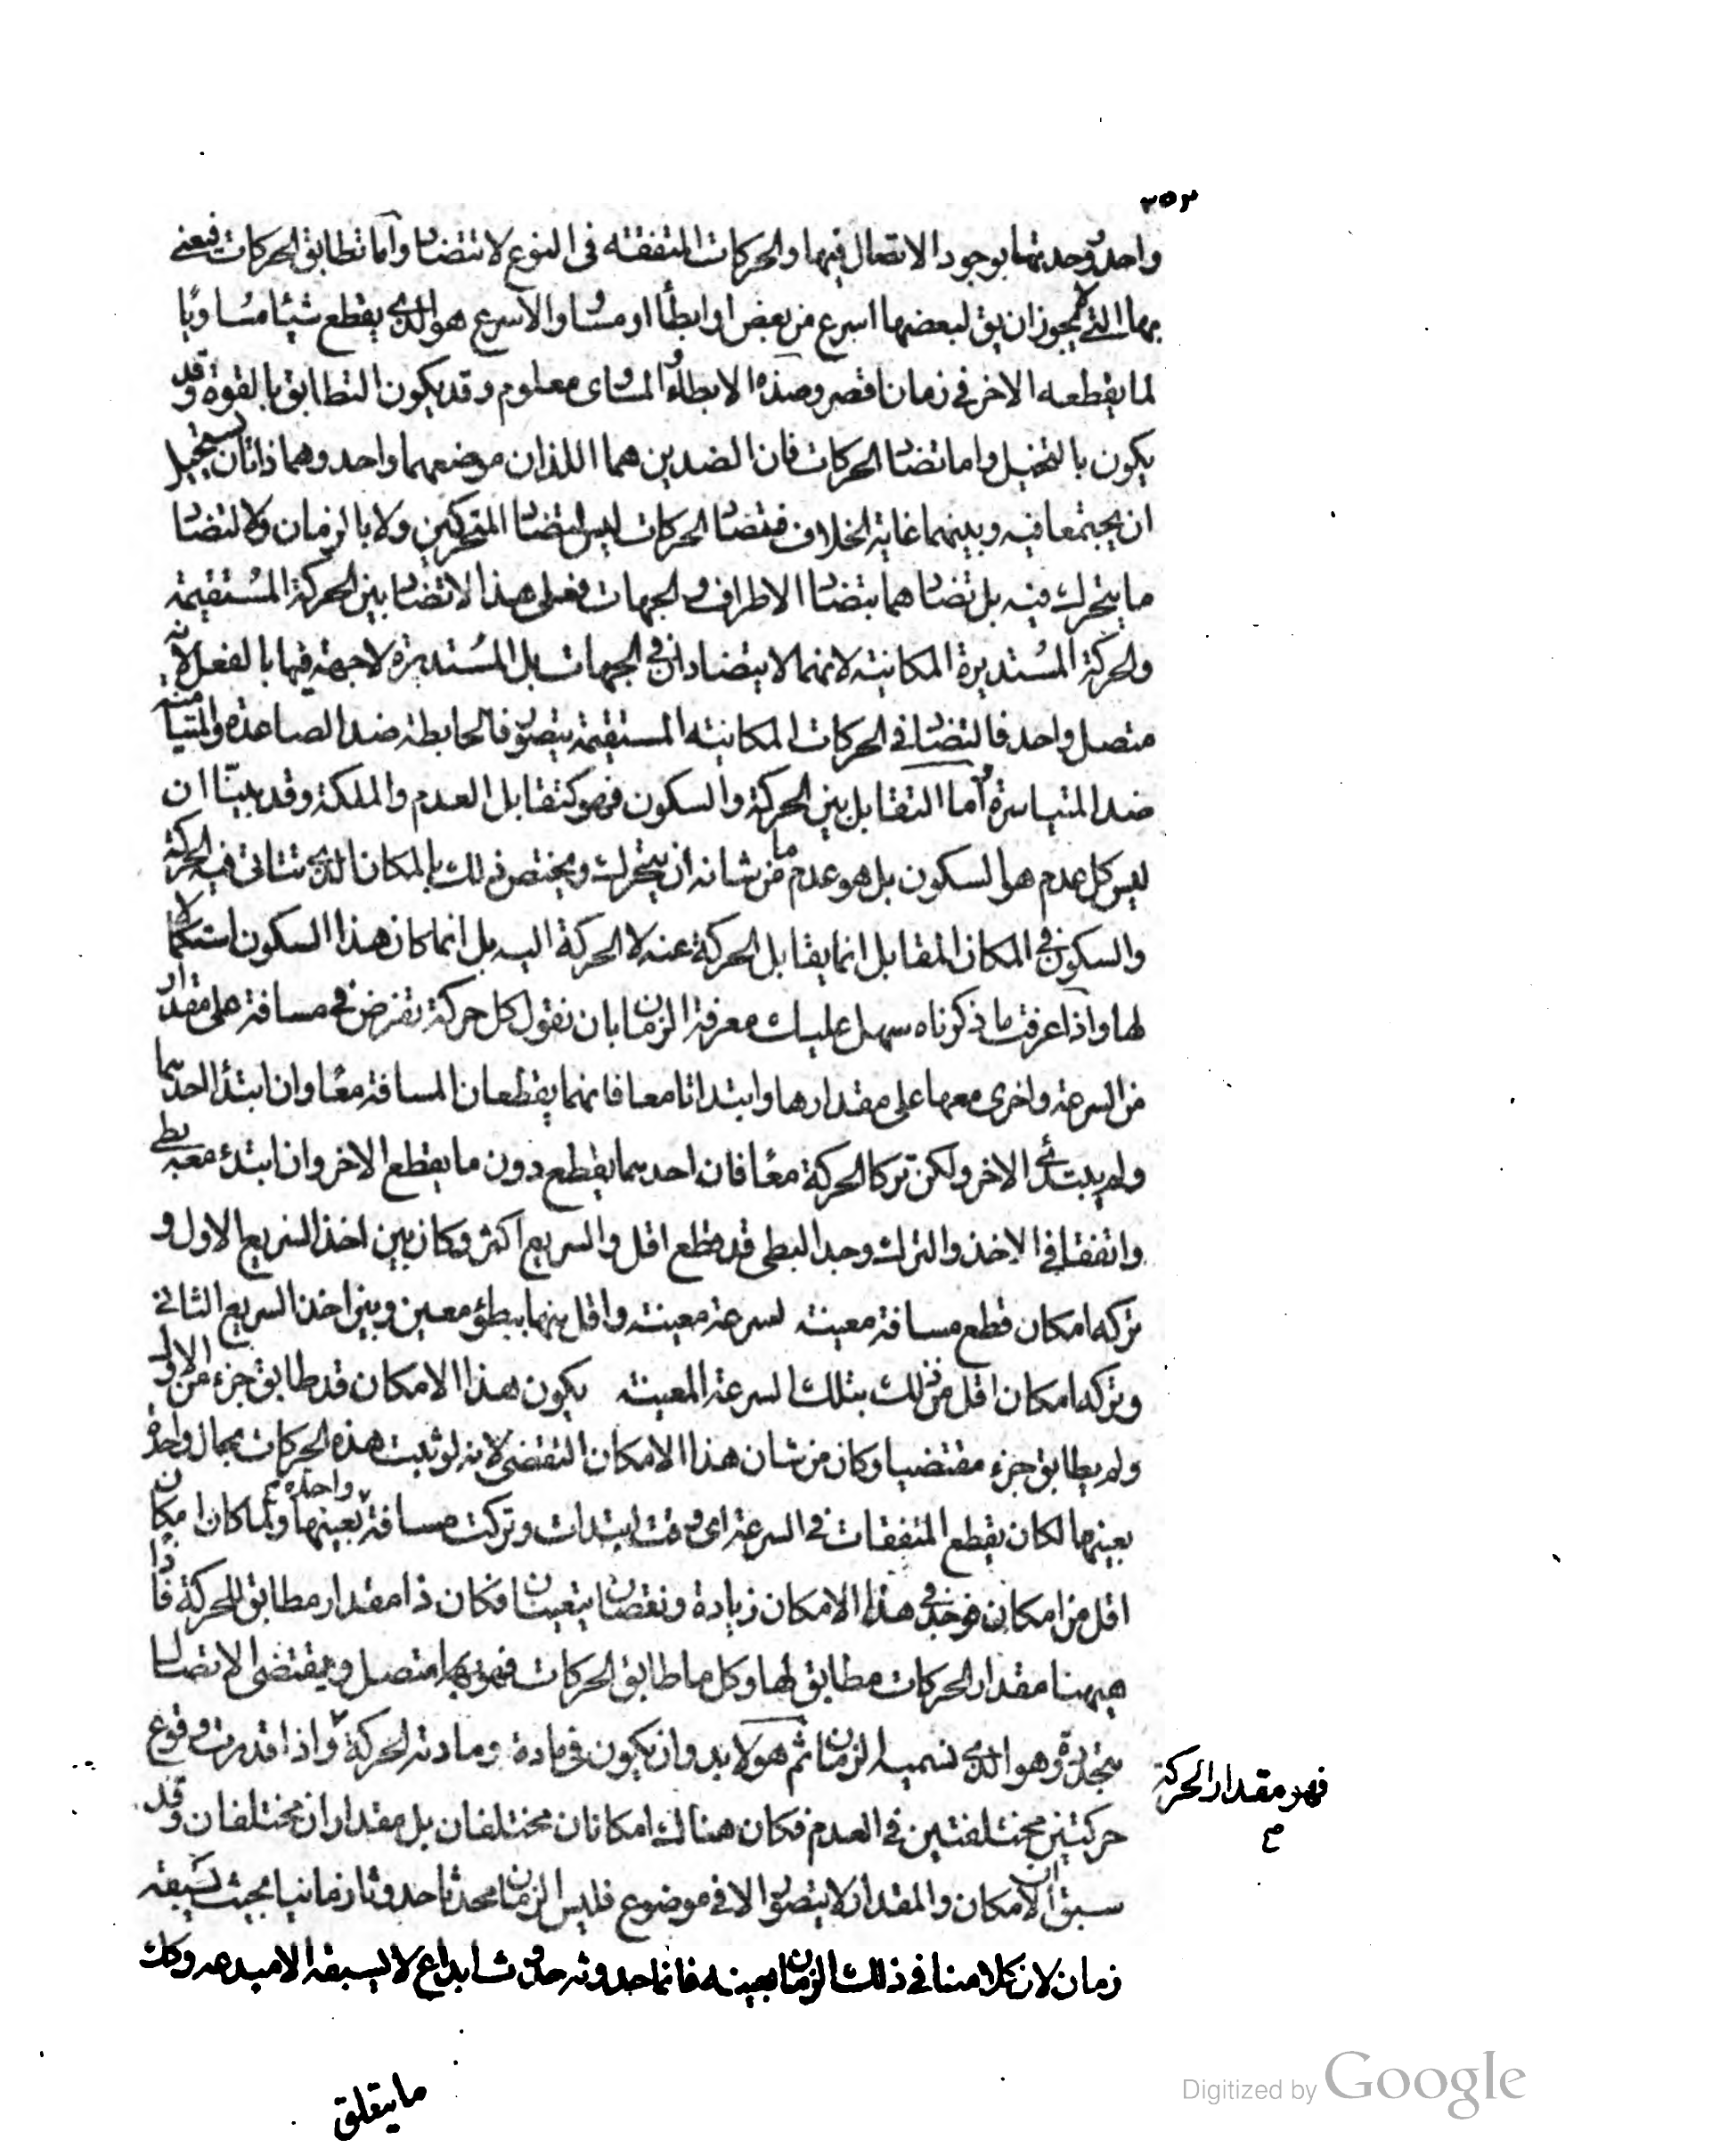 ٣٥٣
واحد ووحدتها بوجود الاتصال فيها والحركات المتفقه فى النوع لا تتضاد واما تطابق الحركات فيعنى
بها التى يجوز ان يق لبعضها اسرع من بعض او ابطأ او مساو والاسرع هو الذى يقطع شيئا مساويا
لما يقطعه الاخر فى زمان اقصر وضده الابطاء والمساوى معلوم وقد يكون التطابق بالقوة وقد
يكون بالتخيل واما تضاد الحركات فان الضدين هما اللذان موضعهما واحد وهما ذاتان يستحيل
ان يجتمعا فيه وبينهما غاية الخلاف فتضاد الحركات ليس لتضاد المتحركين ولا بالزمان ولا لتضاد
ما يتحرك فيه بل تضادهما بتضاد الاطراف والجهات فعلى هذا لا تضاد بين الحركة المستقيمة
والحركة المستديرة المكانية لانهما لا يتضادان فى الجهات بل المستديرة لا جهة فيها بالفعل لانه
متصل واحد فالتضاد فى الحركات المكانيه المستقيمة يتصور فالهابطة ضد الصاعدة والمتيامنة
ضد المتياسرة واما التقابل بين الحركة والسكون فهو كتقابل العدم والملكة وقد بينا ان
ليس كل عدم هو السكون بل هو عدم ما من شانه ان يتحرك ويختص ذلك بالمكان الذى تتاتى فيه الحركة
والسكون فى المكان المقابل انما يقابل الحركة عنه لا الحركة اليه بل انما كان هذا السكون استكمالا
لها واذا عرفت ما ذكرناه سهل عليك معرفة الزمان بان نقول كل حركة تفرض فى مسافة على مقدار
من السرعة واخرى معها على مقدارها وابتداتا معا فانهما يقطعان المسافة معا وان ابتدأ احديهما
ولم يبتدئ الاخر ولكن تركا الحركة معا فان احديهما يقطع دون ما يقطع الاخر وان ابتدئ معه بطى
واتفقا فى الاخذ والترك وجد البطى قد قطع اقل والسريع اكثر وكان بين اخذ السريع الاول و
تركه امكان قطع مسافة معينة لسرعة معينة واقل منها ببطؤ معين وبين اخذ السريع الثانى
وتركه امكان اقل من ذلك بتلك السرعة المعينة يكون هذا الامكان قد طابق جزء من الاول
ولم يطابق جزء مقتضيا وكان من شان هذا الامكان التقضى لانه لو ثبت هذه الحركات بحال واحدة
بعينها لكان يقطع المتفقات فى السرعة اى وقت ابتدات وتركت مسافة واحدة بعينها ولما كان امكان
اقل من امكان فوجد فى هذا الامكان زيادة ونقصان يتعينان فكان ذا مقدار مطابق للحركة فاذا
هيهنا مقدار للحركات مطابق لها وكل ما طابق الحركات فهو متصل ويقتضى الاتصال
متجدده وهو الذى نسميه الزمان ثم هو لا بد وان يكون فى مادة ومادته الحركة واذا قدرت وقوع
فهو مقدار الحركة صح
حركتين مختلفتين فى العدم فكان هناك امكانان مختلفان بل مقداران مختلفان وقد
سبق ان الامكان والمقدار لا يتصور الا فى موضوع فليس الزمان محدثا حدوثا زمانيا بحيث يسبقه
زمان لان كلامنا فى ذلك الزمان بعينه فانما حدوثه حدوث ابداع لا يسبقه الا مبدعه وكك
ما يتعلق
Digitized by Google